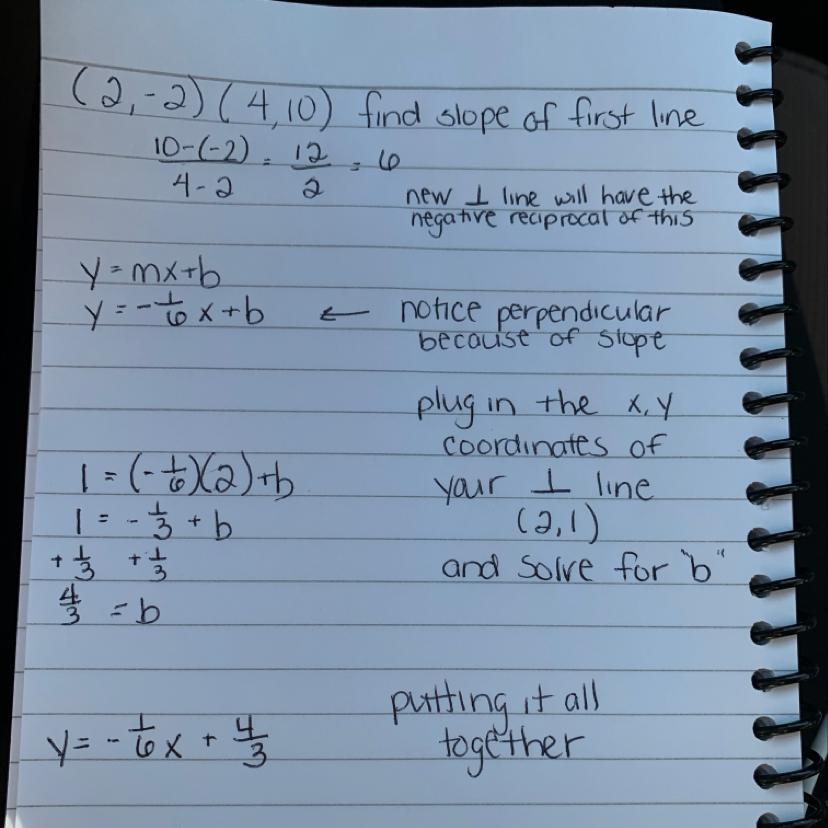 (2,-2) (4,10) find slope of first line
10-(-2)/4-2 = 12/2 = 6
new ⊥ line will have the
negative reciprocal of this
y = mx+b
y = -1/6 x + b ← notice perpendicular
because of slope
plug in the x,y
coordinates of
1 = (-1/6)(2)+b your ⊥ line
1 = -1/3 + b (2,1)
+1/3 +1/3 and solve for "b"
4/3 = b
putting it all
y = -1/6 x + 4/3 together